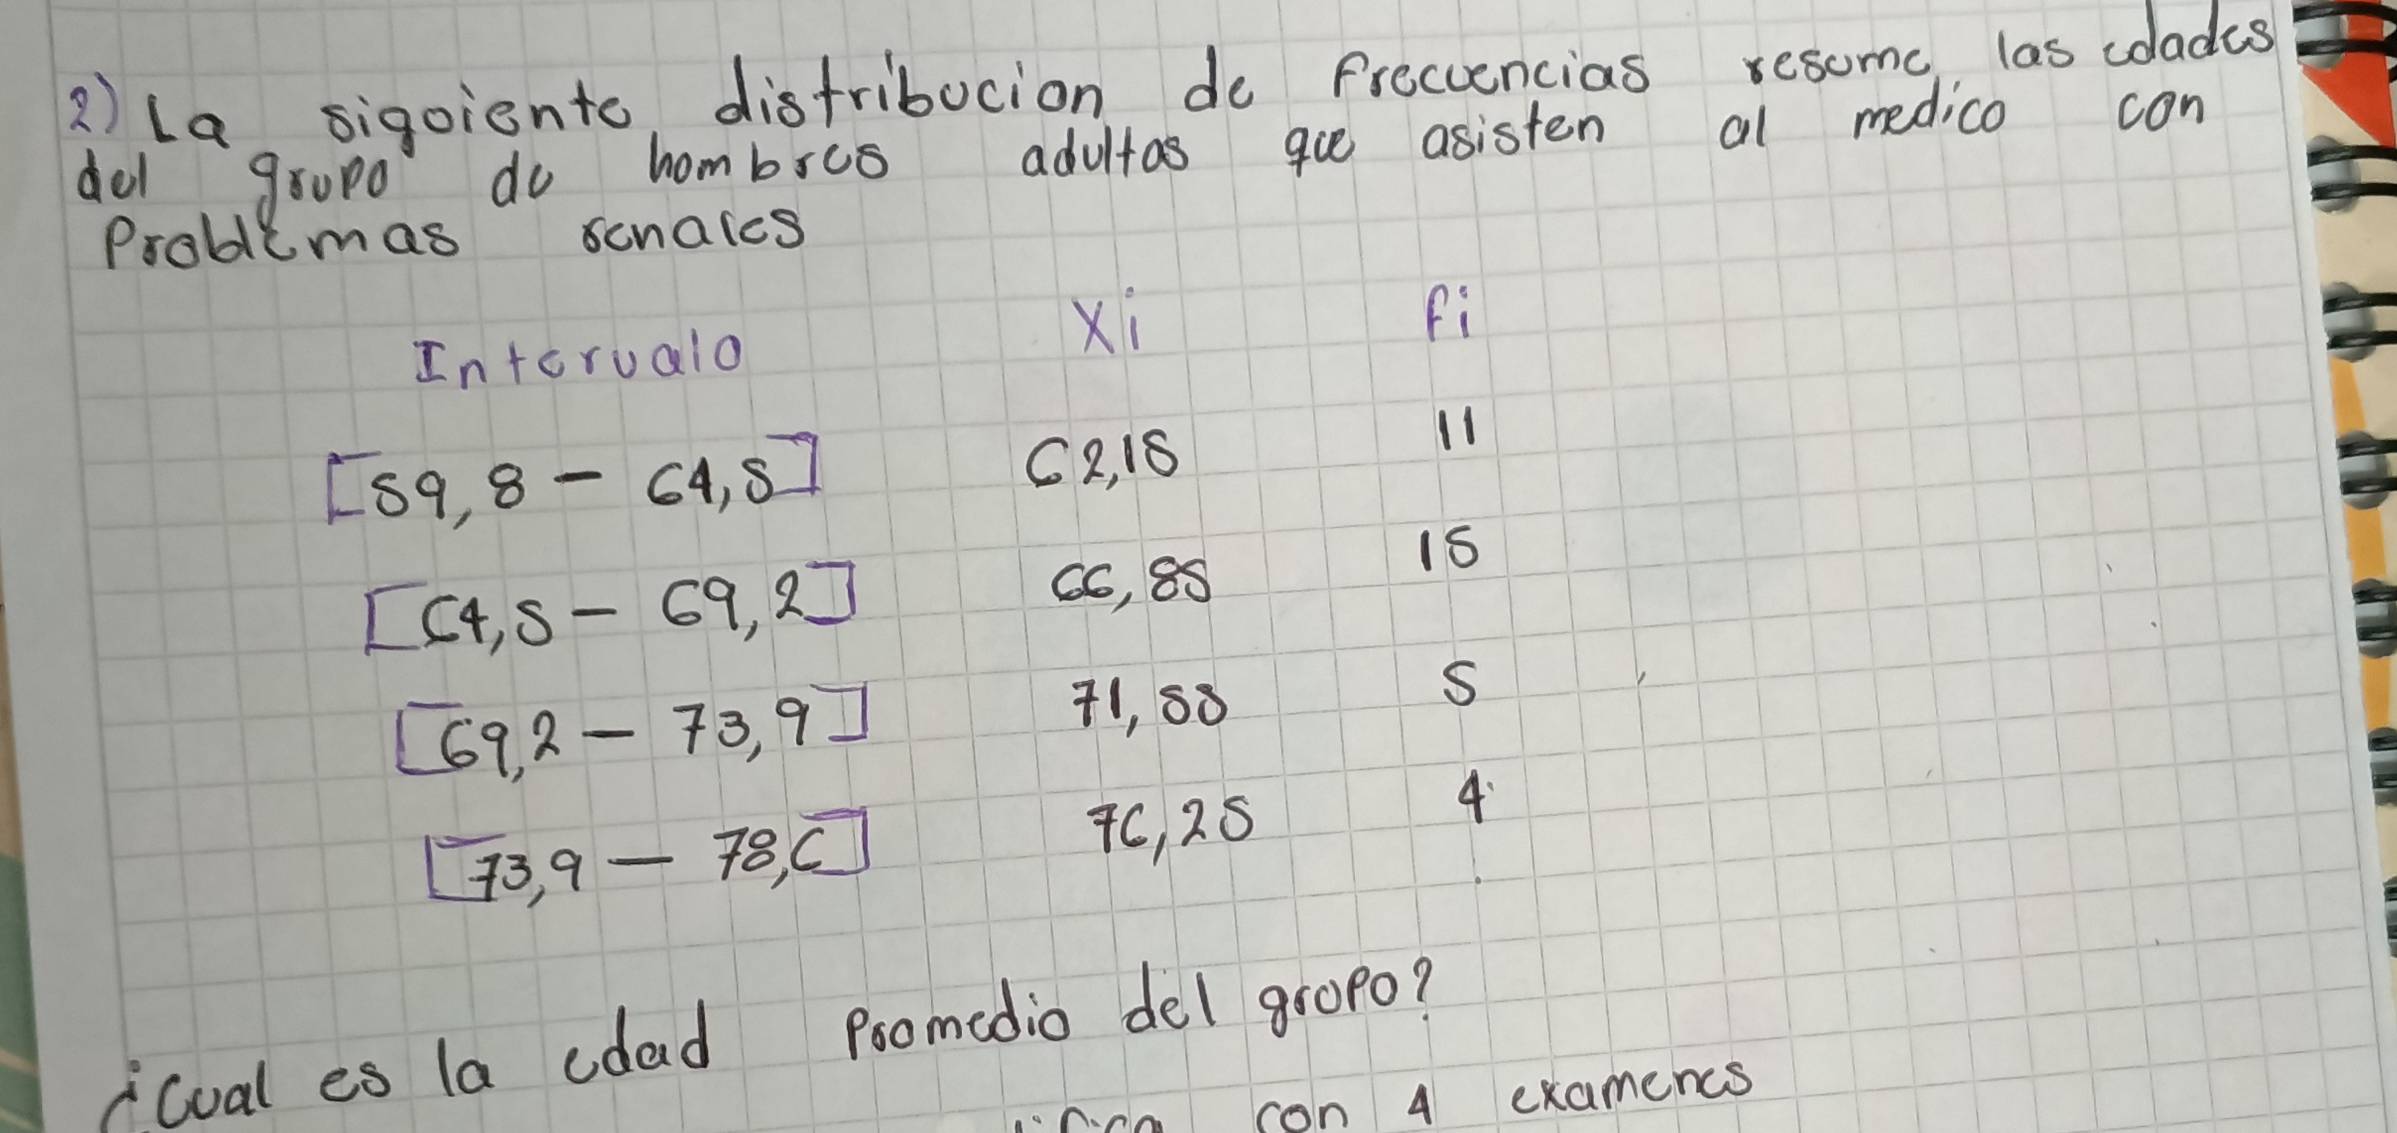 2) La siguiente distribucion de frecuencias resume las edades
del grupo de hombres adultas que asisten al medico con
Problemas renales
Intervalo Xi fi
[59,8 - 64,5] 62,15 11
[64,5 - 69,2] 66,85 15
[69,2 - 73,9] 71,55 5
[73,9 - 78,6] 76,25 4
¿Cual es la edad promedio del grupo?
con 4 examenes